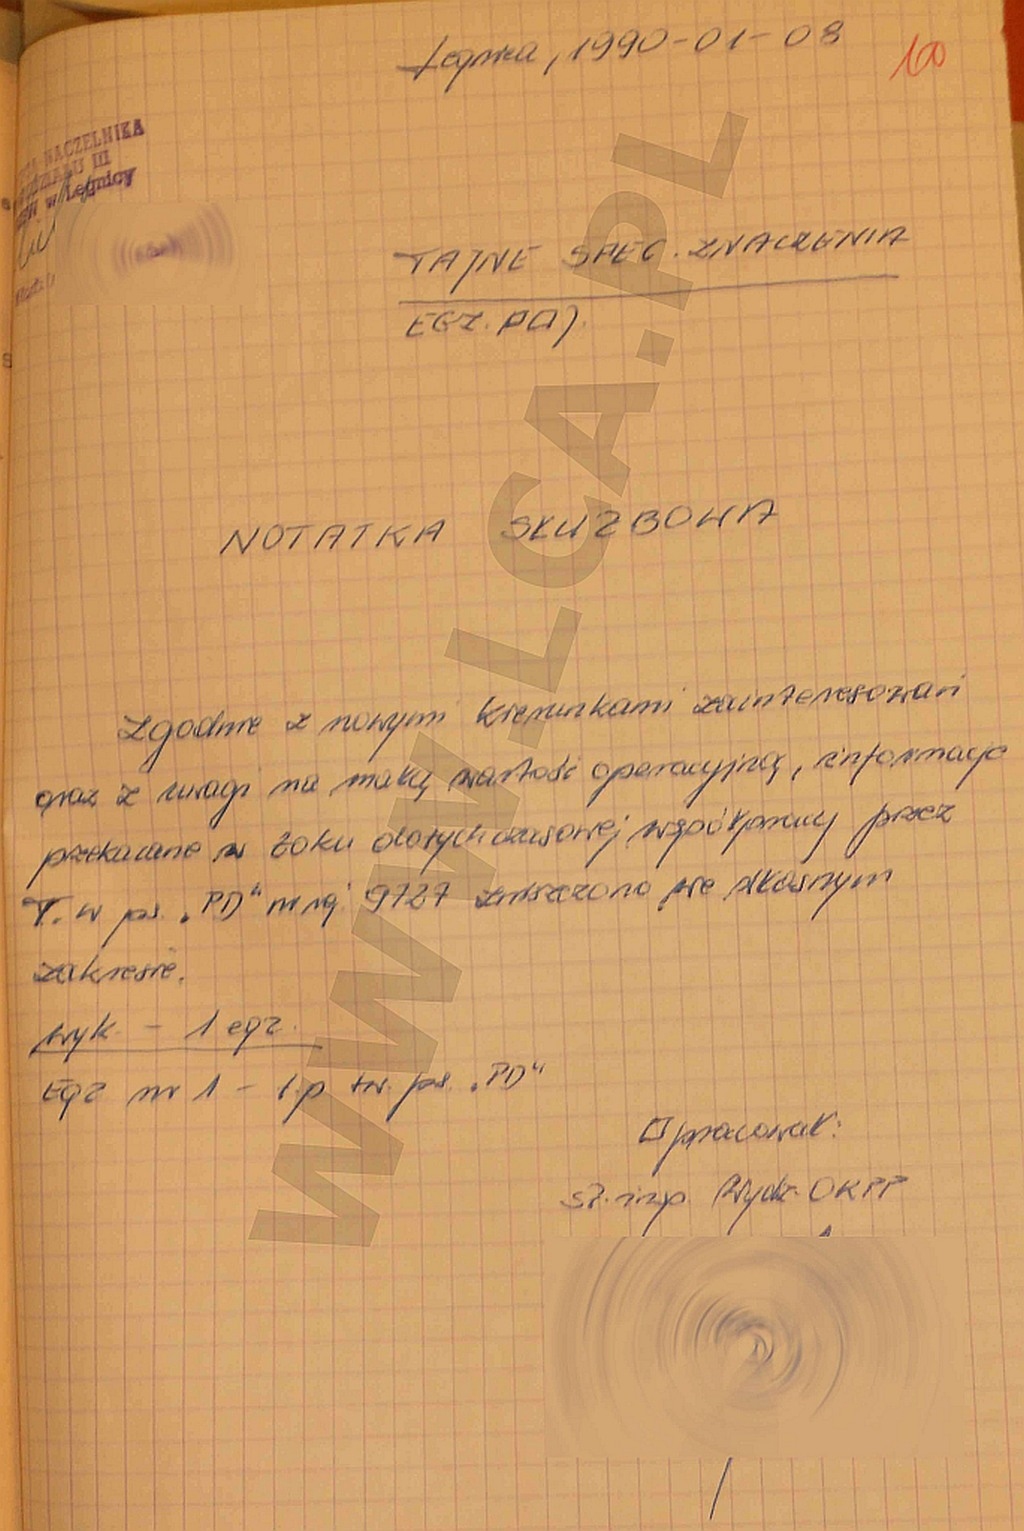 Legnica, 1990-01-08
100
NACZELNIKA
III
w Legnicy
TAJNE SPEC. ZNACZENIA
EGZ. POJ.
NOTATKA SŁUŻBOWA
Zgodnie z nowymi kierunkami zainteresowań
oraz z uwagi na małą wartość operacyjną, informacje
przekazane w toku dotychczasowej współpracy przez
T. w ps. "PD" nr rej. 9727 zniszczono we własnym
zakresie.
Wyk. - 1 egz.
Egz nr 1 - t.p tw. ps. "PD"
Opracował:
st. insp. Wydz. OKPP
WWW.LCA.PL